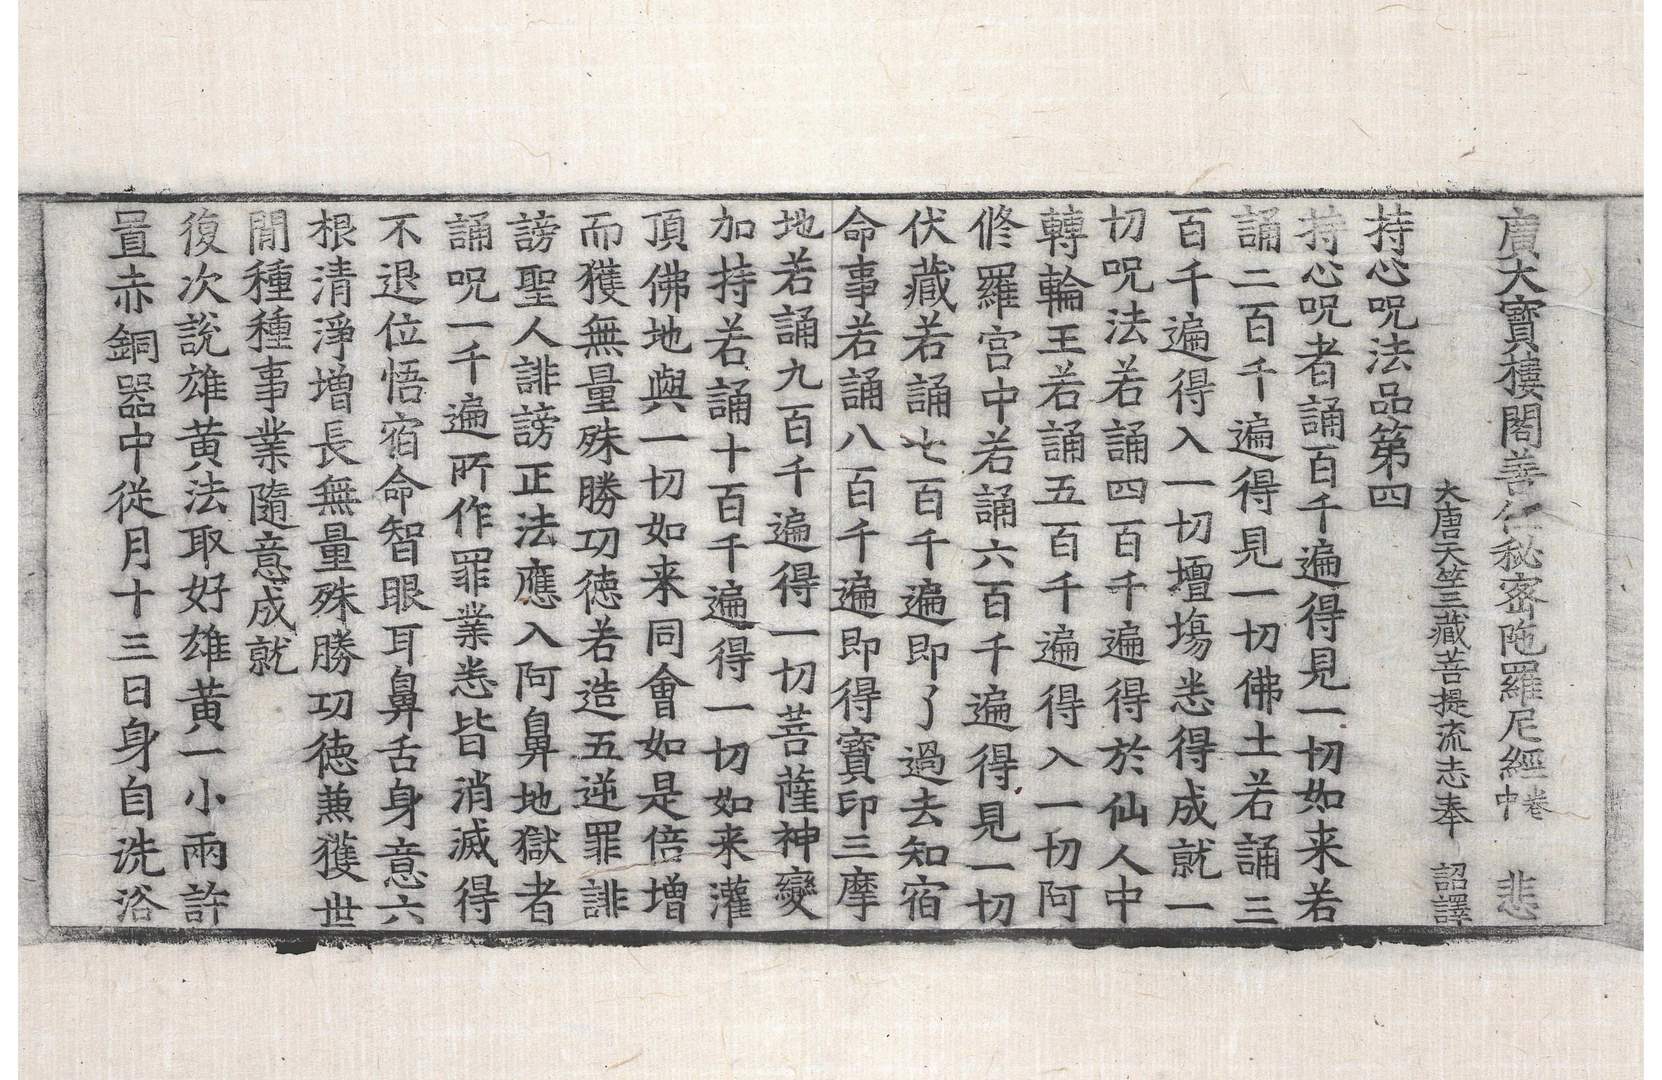 廣大寶樓閣善住秘密陁羅尼經卷中 悲
大唐天竺三藏菩提流志奉 詔譯
持心呪法品第四
持心呪者誦百千遍得見一切如来若
誦二百千遍得見一切佛土若誦三
百千遍得入一切壇場悉得成就一
切呪法若誦四百千遍得於仙人中
轉輪王若誦五百千遍得入一切阿
修羅宮中若誦六百千遍得見一切
伏藏若誦七百千遍即了過去知宿
命事若誦八百千遍即得寶印三摩
地若誦九百千遍得一切菩薩神變
加持若誦十百千遍得一切如来灌
頂佛地與一切如来同會如是倍增
而獲無量殊勝功徳若造五逆罪誹
謗聖人誹謗正法應入阿鼻地獄者
誦呪一千遍所作罪業悉皆消滅得
不退位悟宿命智眼耳鼻舌身意六
根清淨增長無量殊勝功徳兼獲世
閒種種事業隨意成就
復次說雄黄法取好雄黄一小兩許
置赤銅器中従月十三日身自洗浴